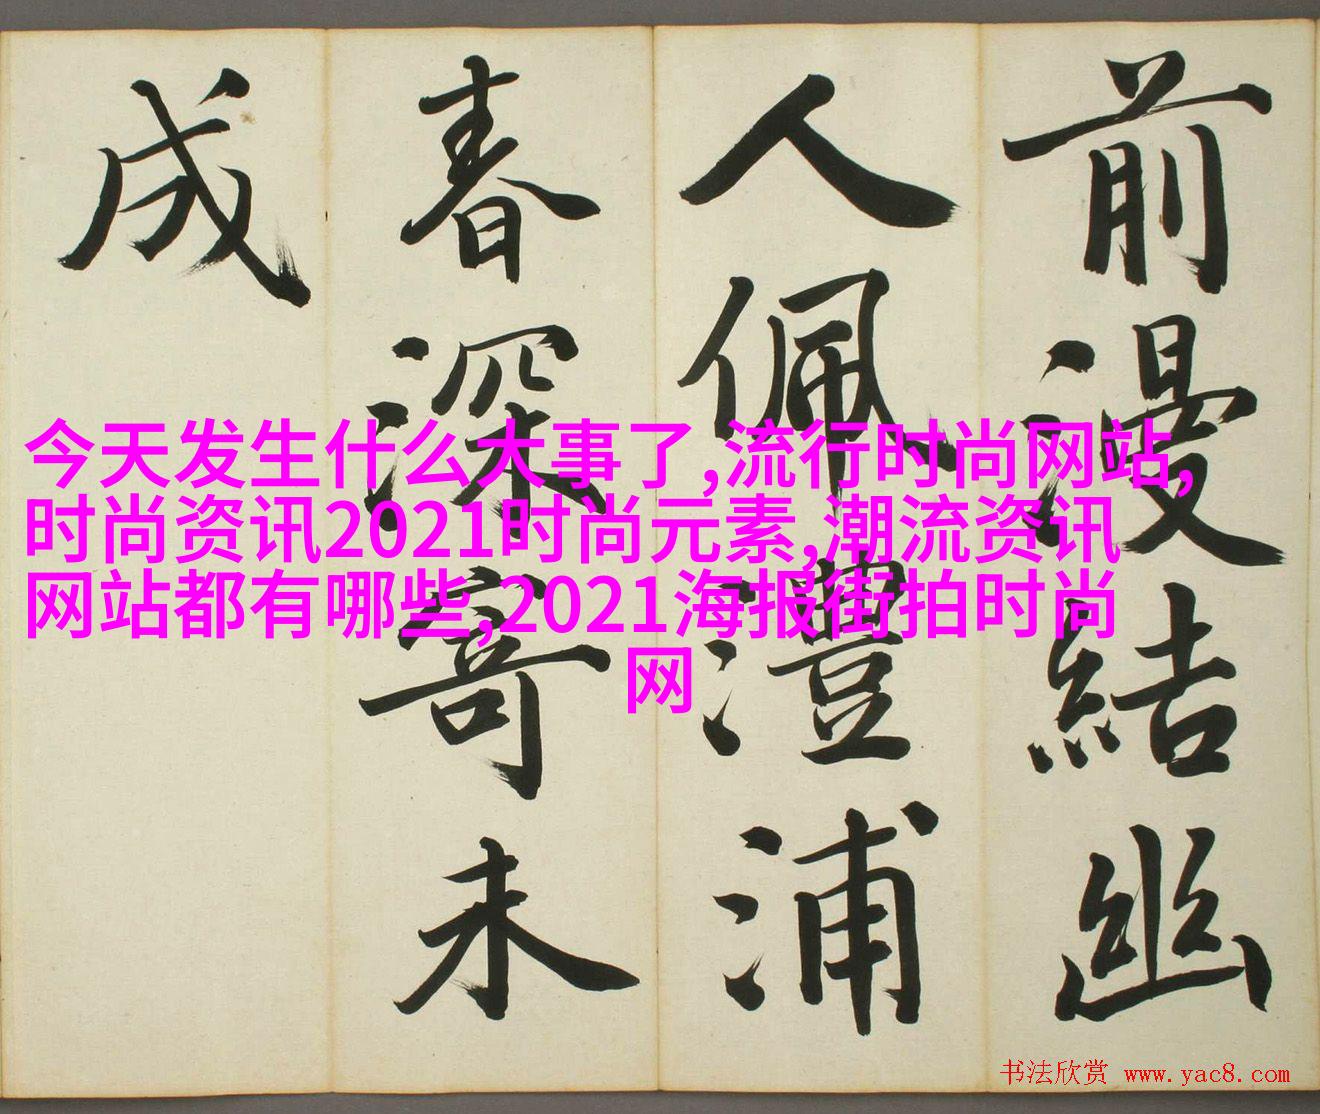 前漫結幽
人佩澧浦
春深寄未
成
今天发生什么大事了,流行时尚网站,
时尚资讯2021时尚元素,潮流资讯
网站都有哪些,2021海报街拍时尚
网
书法欣赏 www.yac8.com